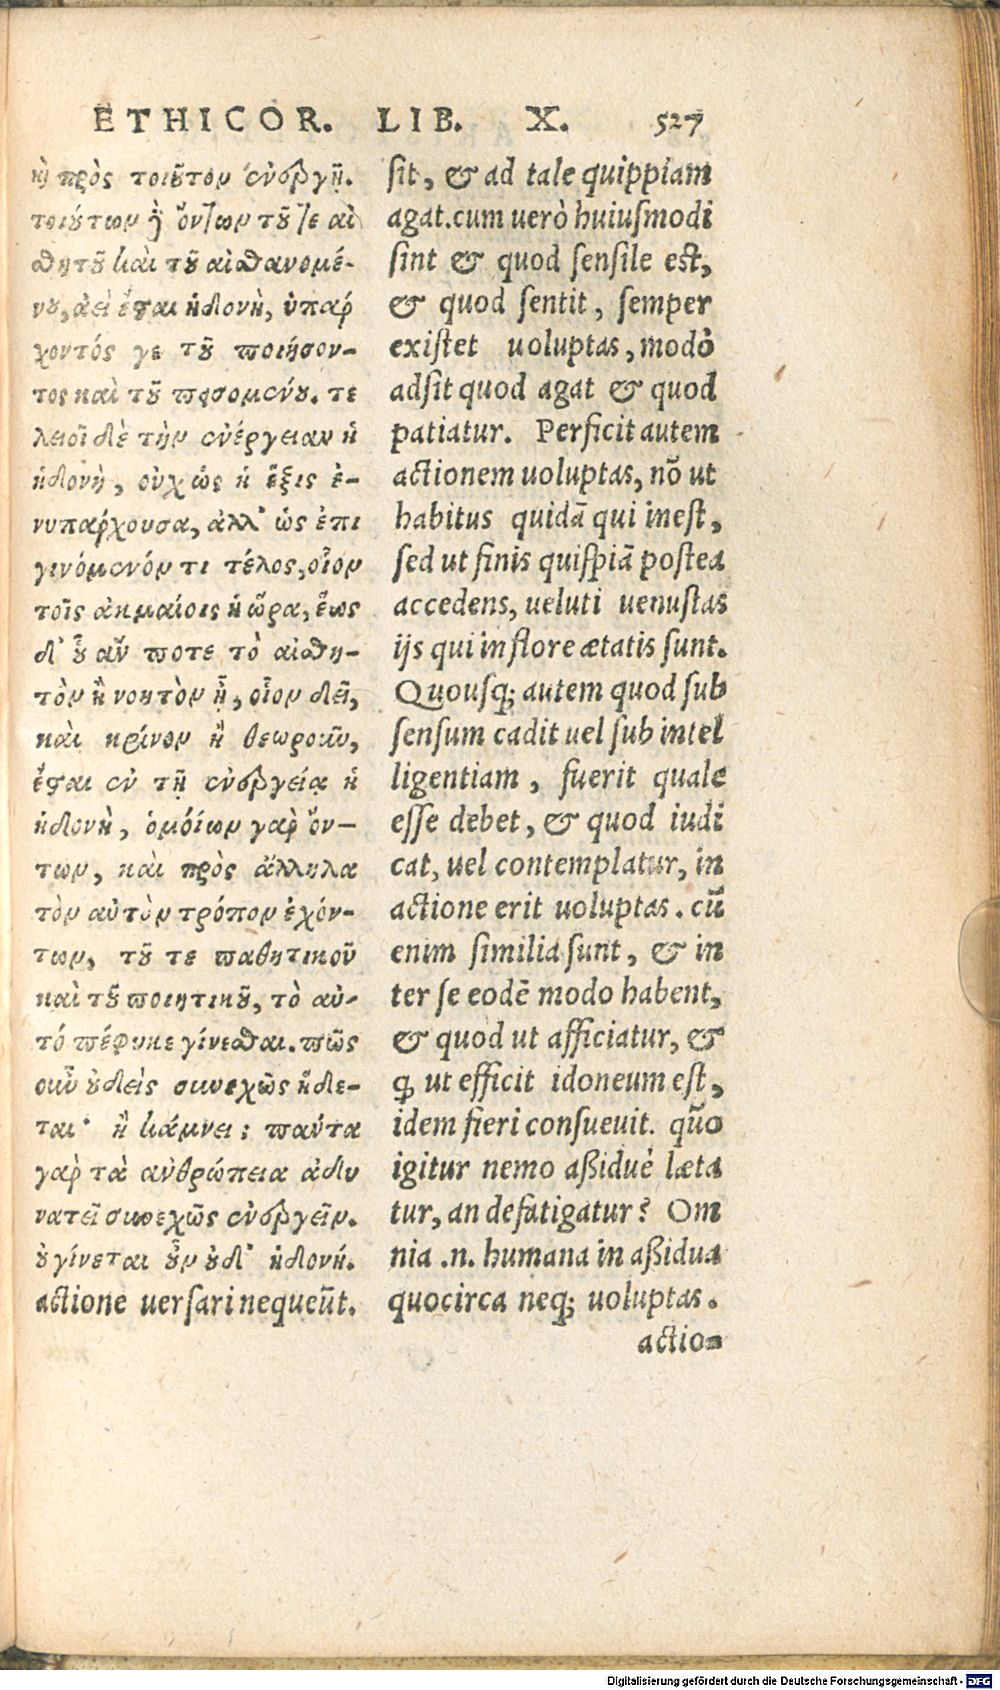 ETHICOR. LIB. X. 527
κὴ πρὸς τοιοῦτον ἐνεργῇ.
τοιούτων ἢ ὄντων τοῦ τε αἰ
σθητοῦ καὶ τοῦ αἰσθανομέ-
νου, ἀεὶ ἔσται ἡδονὴ, ὑπαρ
χοντός γε τοῦ ποιήσον-
τος καὶ τοῦ πεισομένου. τε
λειοῖ δὲ τὴν ἐνέργειαν ἡ
ἡδονὴ, οὐχ ὡς ἡ ἕξις ἐ-
νυπάρχουσα, ἀλλ' ὡς ἐπι
γινόμενόν τι τέλος, οἷον
τοῖς ἀκμαίοις ἡ ὥρα, ἕως
δ' οὗ ἄν ποτε τὸ αἰσθη-
τὸν ἢ νοητὸν ᾖ, οἷον δεῖ,
καὶ κρίνον ἢ θεωροῦν,
ἔσται ἐν τῇ ἐνεργείᾳ ἡ
ἡδονὴ, ὁμοίων γὰρ ὄν-
των, καὶ πρὸς ἄλληλα
τὸν αὐτὸν τρόπον ἐχόν-
των, τοῦ τε παθητικοῦ
καὶ τοῦ ποιητικοῦ, τὸ αὐ-
τό πέφυκε γίνεσθαι. πῶς
οὖν οὐδεὶς συνεχῶς ἥδε-
ται· ἢ κάμνει; πάντα
γὰρ τὰ ἀνθρώπεια ἀδυ
νατεῖ συνεχῶς ἐνεργεῖν.
οὐ γίνεται οὖν οὐδ' ἡδονή.
actione uersari nequeũt.
sit, & ad tale quippiam
agat. cum uerò huiusmodi
sint & quod sensile est,
& quod sentit, semper
existet uoluptas, modò
adsit quod agat & quod
patiatur. Perficit autem
actionem uoluptas, nõ ut
habitus quidã qui inest,
sed ut finis quispiã postea
accedens, ueluti uenustas
ijs qui in flore ætatis sunt.
Quousq; autem quod sub
sensum cadit uel sub intel
ligentiam, fuerit quale
esse debet, & quod iudi
cat, uel contemplatur, in
actione erit uoluptas. cũ
enim similia sunt, & in
ter se eodẽ modo habent,
& quod ut afficiatur, &
ꝙ ut efficit idoneum est,
idem fieri consueuit. quõ
igitur nemo aßiduè læta
tur, an defatigatur? Om
nia .n. humana in aßidua
quocirca neq; uoluptas.
actio-
Digitalisierung gefördert durch die Deutsche Forschungsgemeinschaft - DFG